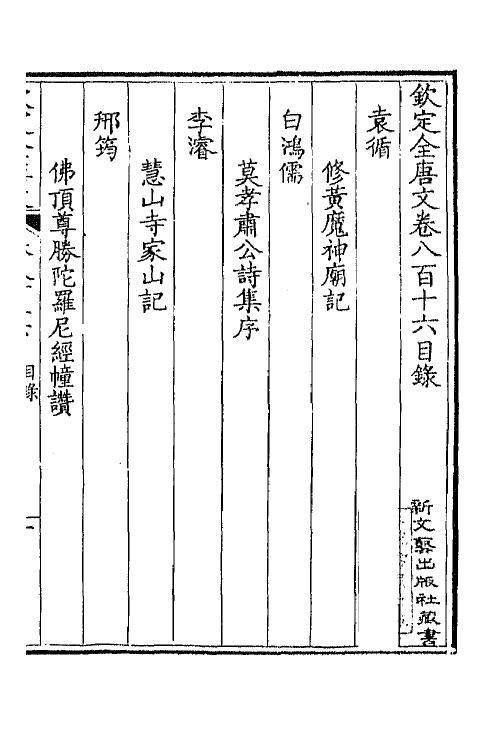 欽定全唐文卷八百十六目錄
新文藝出版社藏書
袁循
修黃魔神廟記
白鴻儒
莫孝肅公詩集序
李濬
慧山寺家山記
邢筠
佛頂尊勝陀羅尼經幢讚
目錄
一